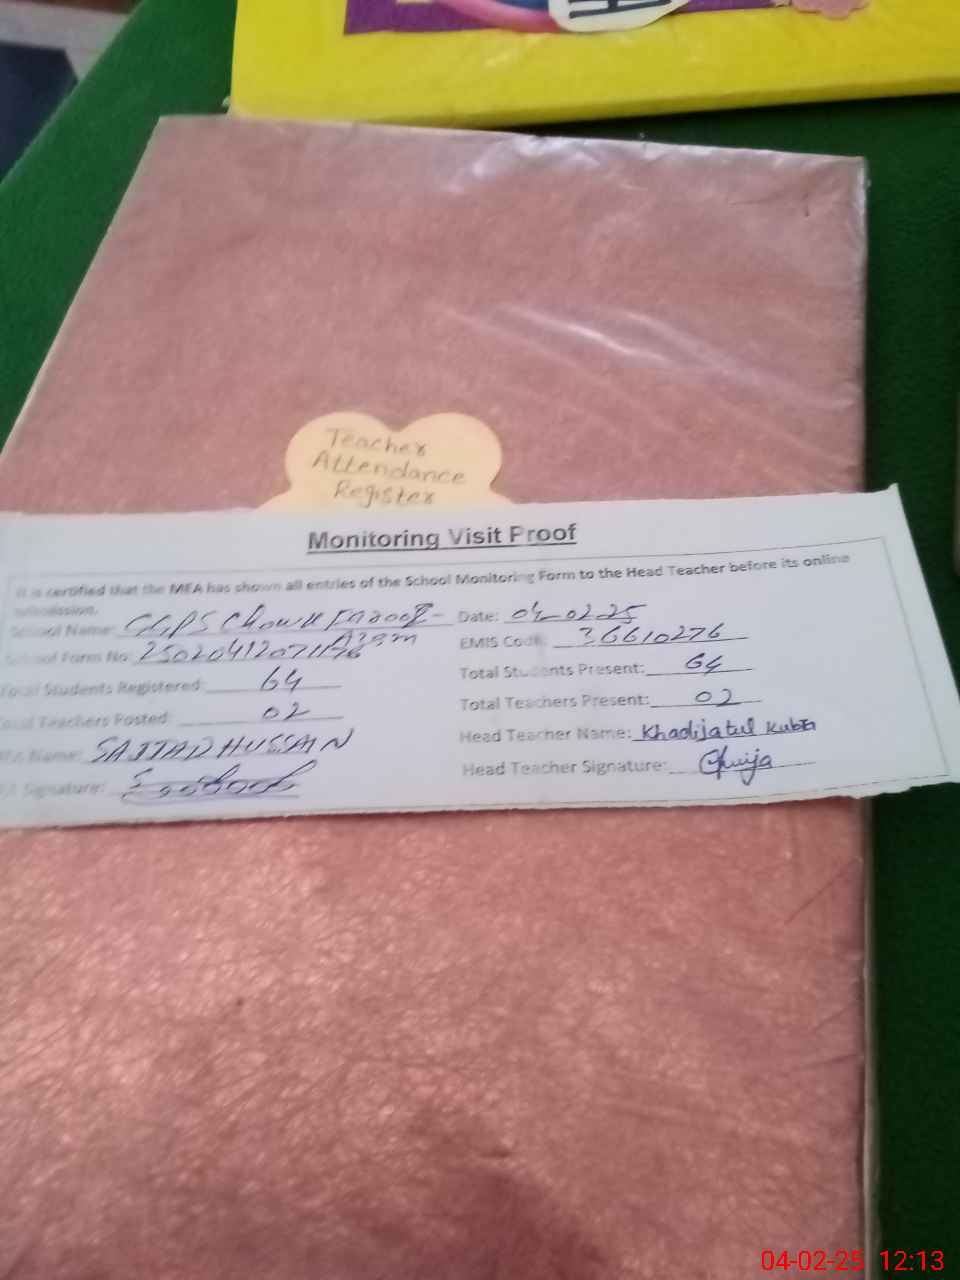 Teacher
Attendance
Register
Monitoring Visit Proof
It is certified that the MEA has shown all entries of the School Monitoring Form to the Head Teacher before its online
submission.
School Name: GGPS Chowk Farooq-
Azam
Date: 04-02-25
School Form No:
EMIS Code: 36610276
Total Students Registered: 64
Total Students Present: 64
Total Teachers Posted: 02
Total Teachers Present: 02
MEA Name: SAJJAD HUSSAIN
Head Teacher Name: Khadijatul Kubra
MEA Signature:
Head Teacher Signature:
04-02-25 12:13